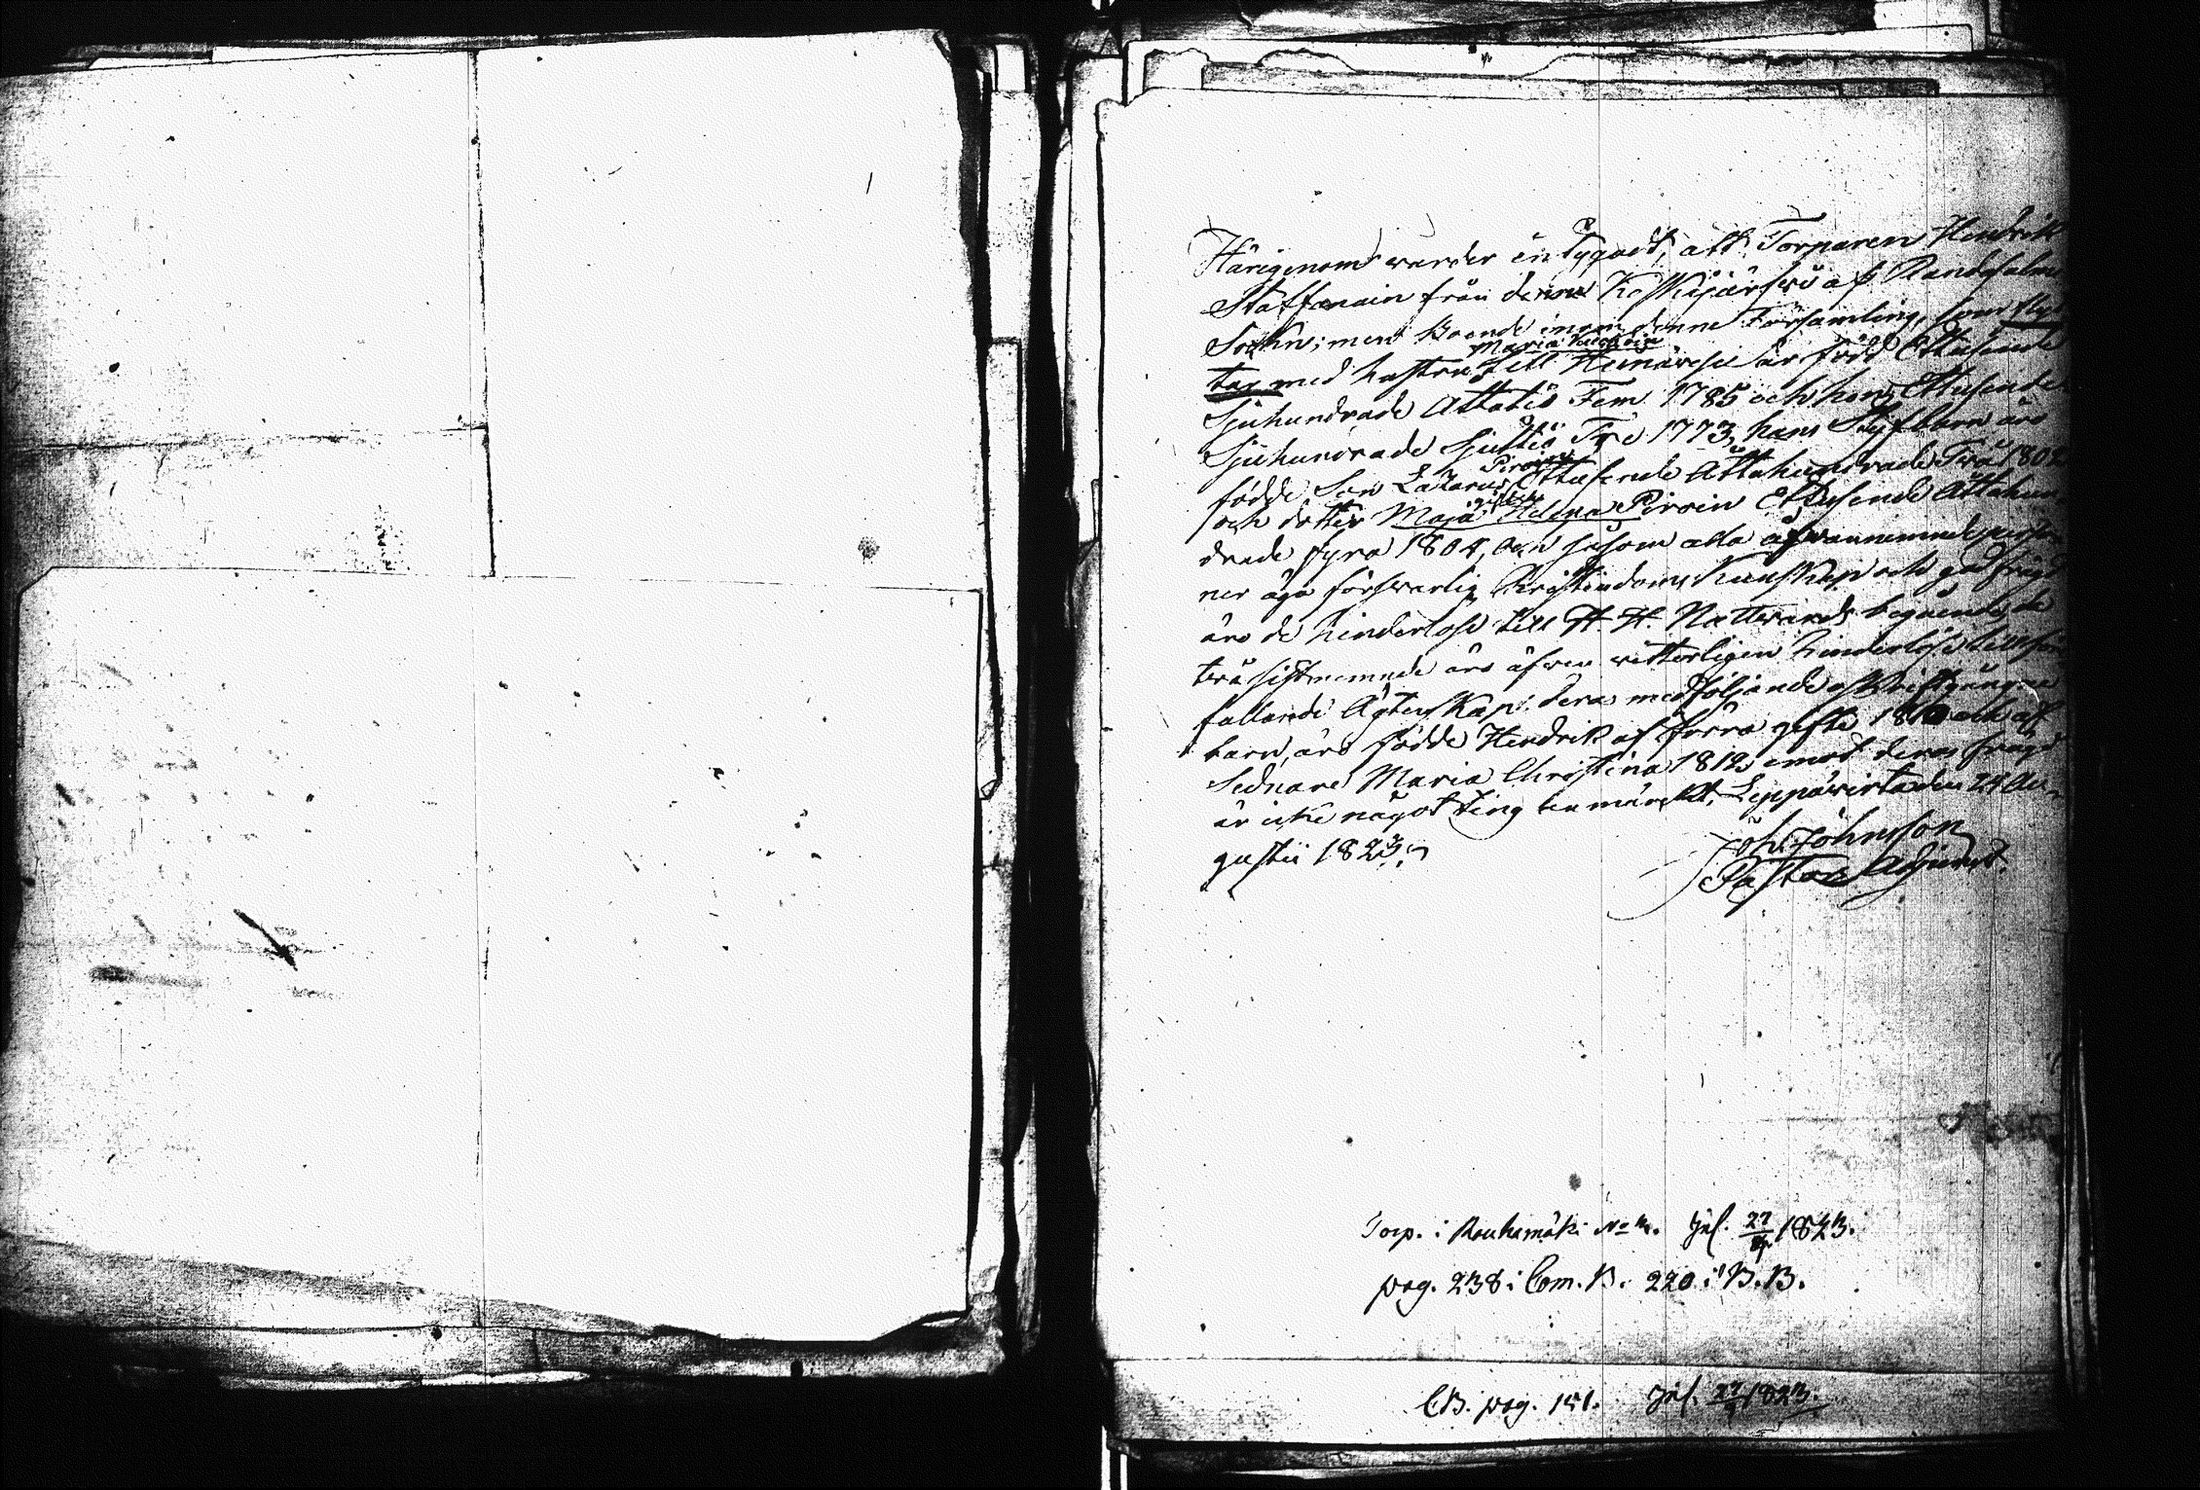 Härigenom warder intygadt, att Torparen Hendrik
Staffanain från denne Koskijärfwi af Randasalmi
Sokn; men Boende inom denne Församling, som flyt-
tar med hustru Maria till Heinäwesi är född Ettusende
Sjuhundrade Åttatio Fem 1785 och hon Ettusende
Sjuhundrade Sjuttio Tre 1773, hans Styfbarn äro
födde Son Lazarus Piroin Ettusende Åttahundrade Två 1802
och dotter Maja Helena Piroin Ettusende Åttahun-
drade fyra 1804, och såsom alla ofwannemnde perso-
ner äga förswarlig Christendoms Kunskap och god frägd
äro de hinderlöse till H. H. Nattwards begående, de
twå sistnemnde äro äfwen witterligen hinderlöse till före
fallande Ägtenskap: deras medföljande oskriftgångne
barn, äro födde Hendrik af förra gifte 1810 och af
Sednare Maria Christina 1812, emot deras frägd
är icke något ting anmärkt, Leppäwirta den 24 Au-
gustii 1823.
Joh. Johnsson
Pastors Adjunct.
Torp. i Rouhamäki No Inf. 27 1823.
pag. 238 i Com. B. 220 i B. B.
CB. pag. 151. Inf. 27/9 1823.